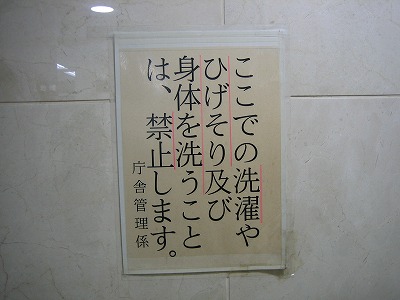 ここでの洗濯や
ひげそり及び
身体を洗うこと
は、禁止します。
庁舎管理係